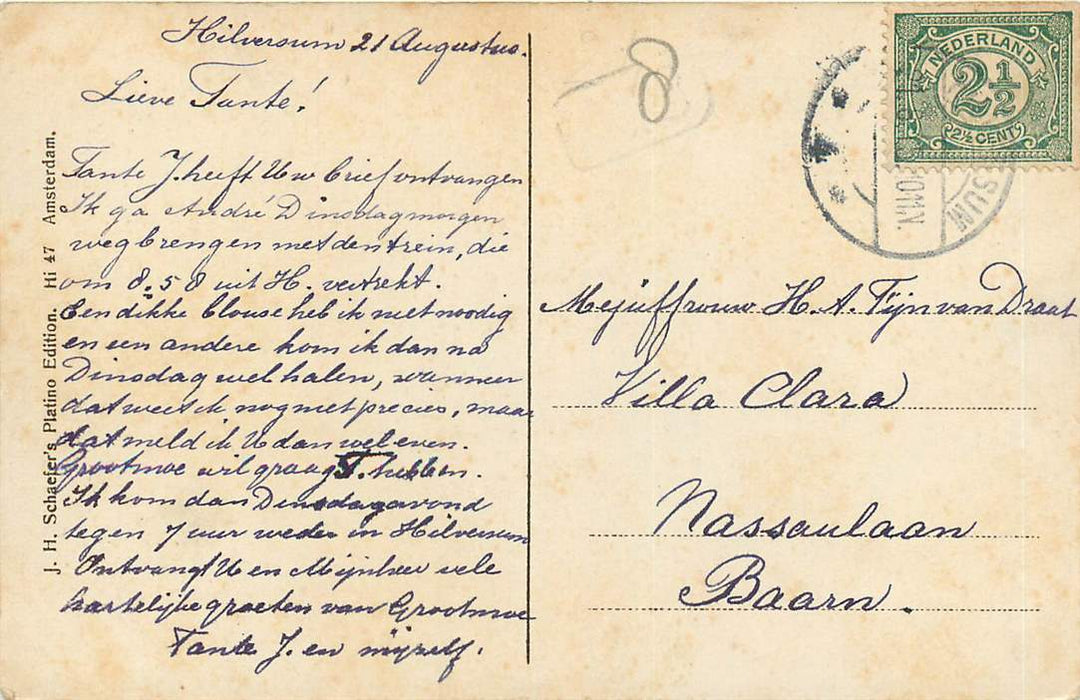 Hilversum 21 Augustus.
Lieve Tante!
Tante J. heeft Uw brief ontvangen
Ik ga André Dinsdagmorgen
wegbrengen met den trein, die
om 8.58 uit H. vertrekt.
Een dikke blouse heb ik niet noodig
en een andere kom ik dan na
Dinsdag wel halen, wanneer
dat weet ik nog niet precies, maar
dat meld ik U dan wel even.
Grootmoe wil graag T. hebben.
Ik kom dan Dinsdagavond
tegen 7 uur weder in Hilversum
Ontvangt U en Mijnheer vele
hartelijke groeten van Grootmoe
Tante J. en mijzelf.
J. H. Schaefer's Platino Edition. Hi 47 Amsterdam.
8
NEDERLAND
2½
2½ CENT
10-11.V.
SUM
Mejuffrouw H. A. Tijn van Draat
Villa Clara
Nassaulaan
Baarn.